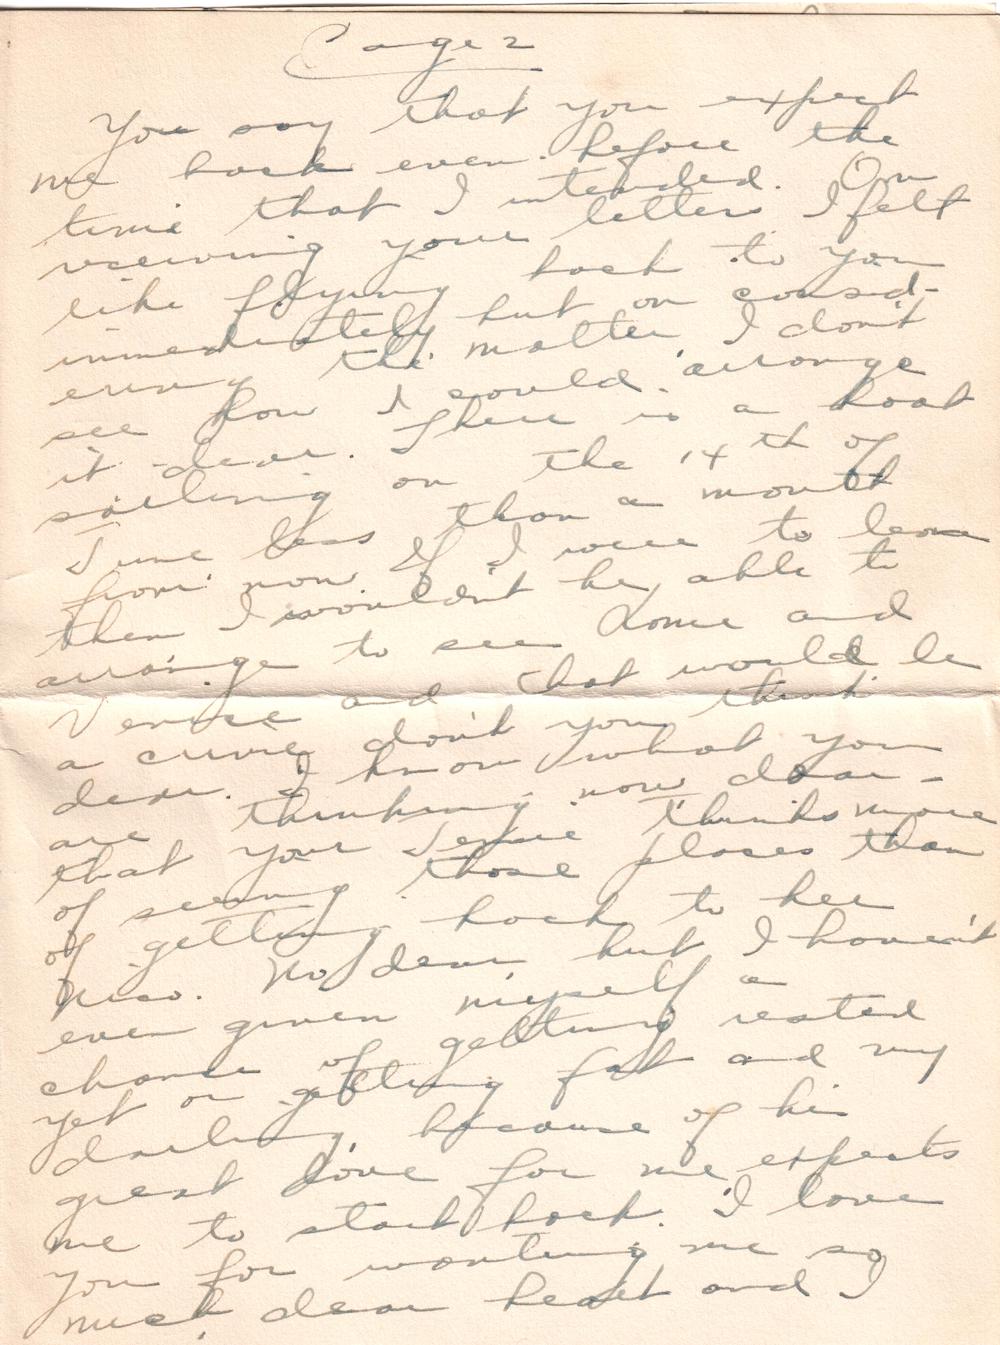 Page 2
You say that you expect
me back even before the
time that I intended. On
receiving your letters I felt
like flying back to you
immediately but on consid-
ering the matter I don't
see how I could arrange
it dear. There is a boat
sailing on the 14th of
June less than a month
from now If I were to leave
then I wouldn't be able to
arrange to see Rome and
Venice and that would be
a crime don't you think
dear. I know what you
are thinking now dear -
that your Jessie thinks more
of seeing those places than
of getting back to her
No dear, but I haven't
even given myself a
chance of getting rested
yet or getting fat and my
darling, because of his
great love for me expects
me to start back. I love
you for wanting me so
much dear heart and I